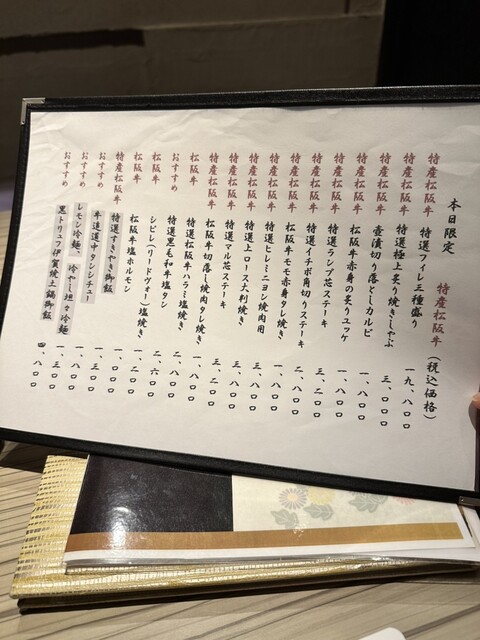 本日限定 特産松阪牛(税込価格)
特産松阪牛 特選フィレ三種盛り 一九、八〇〇
特産松阪牛 特選極上炙り焼きしゃぶ 三、〇〇〇
特産松阪牛 壺漬切り落としカルビ 一、八〇〇
特産松阪牛 松阪牛赤身の炙りユッケ 一、八〇〇
特産松阪牛 特選ランプ芯ステーキ 三、二〇〇
特産松阪牛 特選イチボ角切りステーキ 二、八〇〇
特産松阪牛 松阪牛モモ赤身タレ焼き 一、八〇〇
特産松阪牛 特選ヒレミニヨン焼肉用 三、八〇〇
特産松阪牛 特選上ロース大判焼き 三、八〇〇
特産松阪牛 特選マル芯ステーキ 三、二〇〇
特産松阪牛 松阪牛切落し焼肉タレ焼き 一、八〇〇
松阪牛 特選松阪牛ハラミ塩焼き 二、八〇〇
おすすめ 特選黒毛和牛塩タン 二、六〇〇
松阪牛 シビレ(リードヴォー)塩焼き 一、二〇〇
松阪牛 松阪牛塩ホルモン 一、〇〇〇
特産松阪牛 特選すきやき御飯 一、三〇〇
おすすめ 牛道道中タンシチュー 一、八〇〇
おすすめ レモン冷麺、冷やし坦々冷麺 一、三〇〇
おすすめ 黒トリュフ伊賀焼土鍋御飯 四、八〇〇